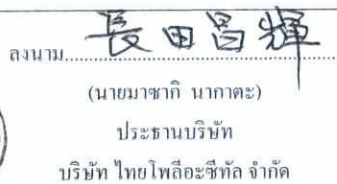 ลงนาม 長田昌輝
(นายมาซากิ นากาตะ)
ประธานบริษัท
บริษัท ไทยโพลีอะซีทัล จำกัด